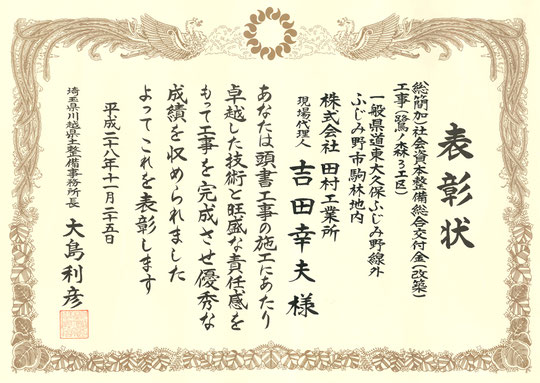 表彰状
総簡加)社会資本整備総合交付金(改築)
工事(鷺ノ森3工区)
一般県道東大久保ふじみ野線外
ふじみ野市駒林地内
株式会社 田村工業所
現場代理人 吉田幸夫様
あなたは頭書工事の施工にあたり
卓越した技術と旺盛な責任感を
もって工事を完成させ優秀な
成績を収められました
よってこれを表彰します
平成二十八年十一月二十五日
埼玉県川越県土整備事務所長 大島利彦